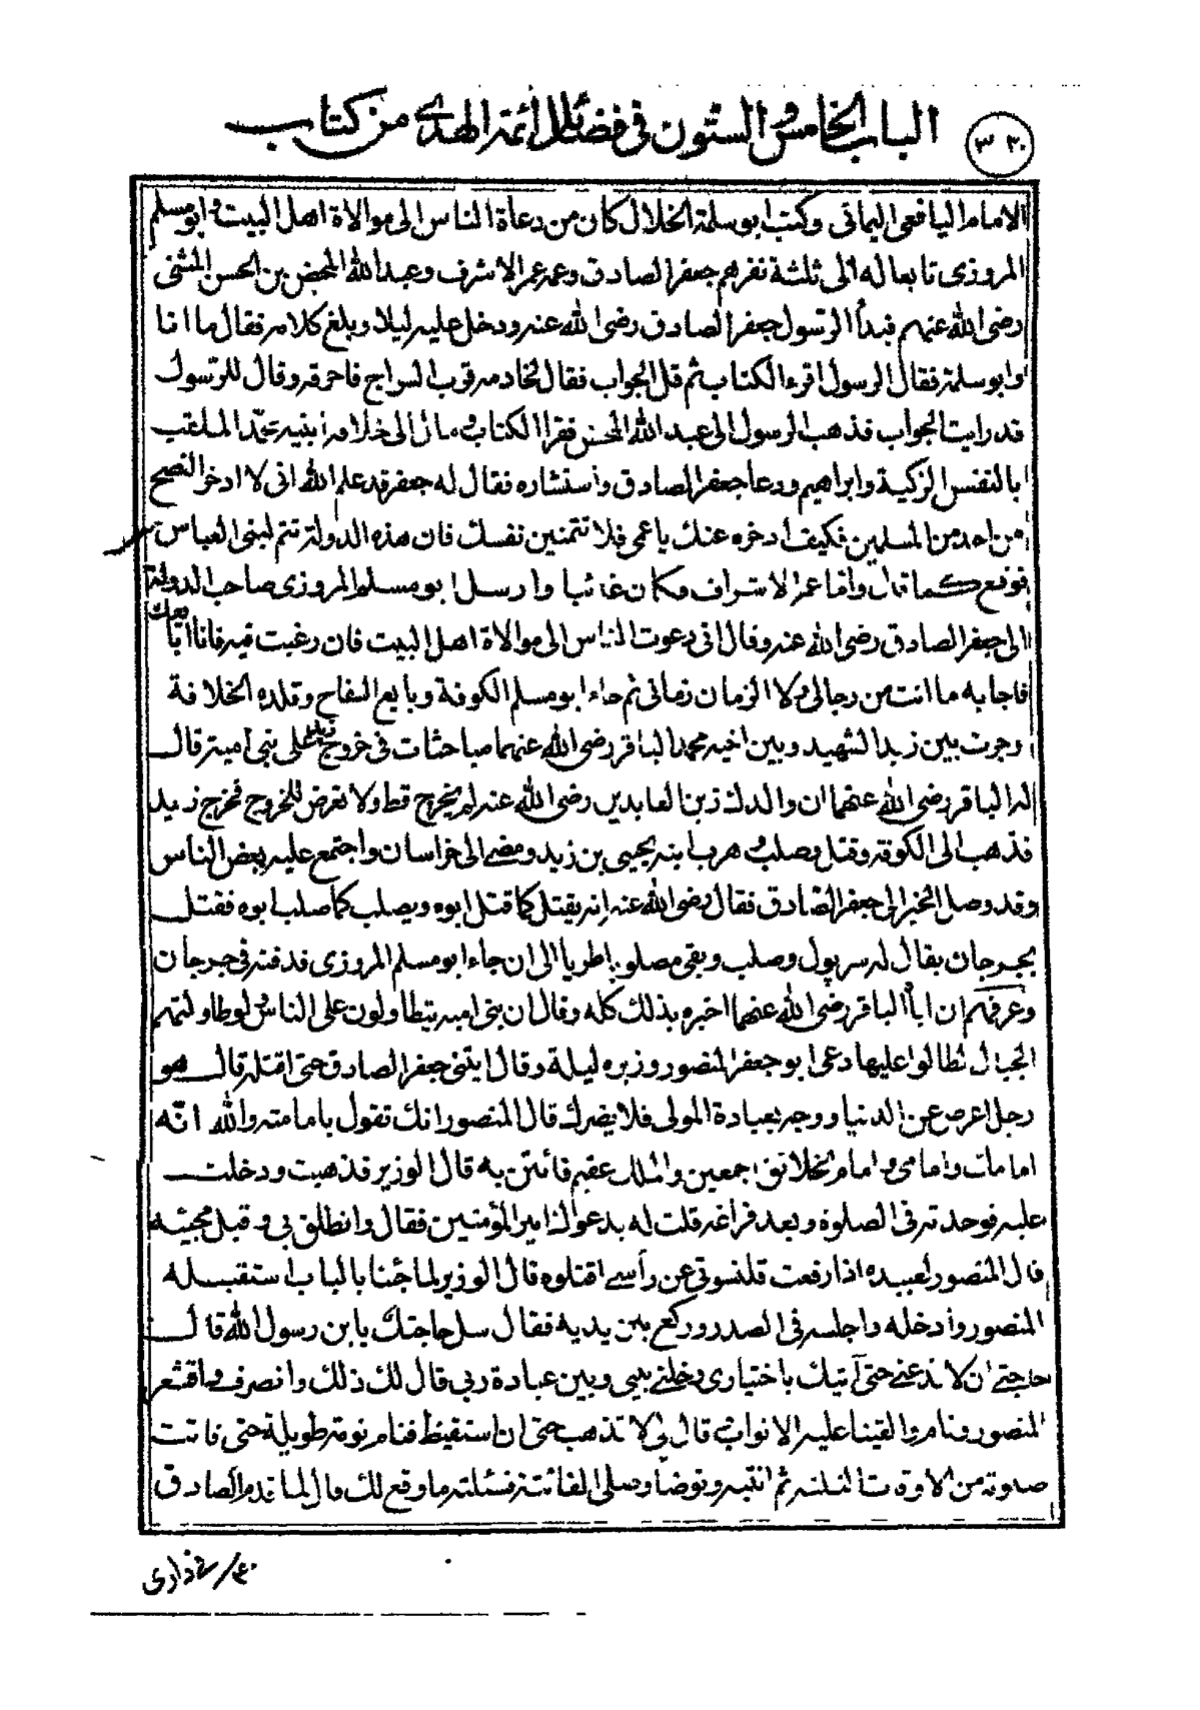 الباب الخامس والستون فى فضائل الائمة الهدى من كتاب
٣٢٠
الامام اليافعى اليمانى وكتب ابو سلمة الخلال كان من دعاة الناس الى موالاة اهل البيت وابو مسلم
المروزى تابعا له الى ثلثة نفر هم جعفر الصادق وعمه عمر الاشرف وعبد الله المحض بن الحسن المثنى
رضى الله عنهم فبدأ الرسول جعفر الصادق رضى الله عنه ودخل عليه ليلا وبلغ كلامه فقال ما انا
وابو سلمة فقال الرسول اقرء الكتاب ثم قل الجواب فقال لخادمه قرب السراج فاحرقه وقال للرسول
قد رايت الجواب فذهب الرسول الى عبد الله المحض فقرا الكتاب ومال الى خلافة ابنيه محمد الملقب
بالنفس الزكية وابراهيم ودعا جعفر الصادق واستشاره فقال له جعفر قد علم الله انى لا ادخر النصح
من احد من المسلمين فكيف ادخره عنك يا عمى فلا تتمنين نفسك فان هذه الدولة تتم لبنى العباس
فوقع كما قال واما عمر الاشراف فكان غائبا وارسل ابو مسلم المروزى صاحب الدولة
الى جعفر الصادق رضى الله عنه وقال انى دعوت الناس الى موالاة اهل البيت فان رغبت فيه فانا ابايعك
فاجابه ما انت من رجالى ولا الزمان زمانى ثم جاء ابو مسلم الكوفة وبايع السفاح وقلده الخلافة
وجرت بين زيد الشهيد وبين اخيه محمد الباقر رضى الله عنهما مباحثات فى خروج زيد على بنى امية قال
له الباقر رضى الله عنهما ان والدك زين العابدين رضى الله عنه لم يخرج قط ولا تعرض للخروج فخرج زيد
فذهب الى الكوفة وقتل وصلب وهرب ابنه يحيى بن زيد ومضى الى خراسان واجتمع عليه بعض الناس
وقد وصل الخبر الى جعفر الصادق فقال رضى الله عنه انه يقتل كما قتل ابوه ويصلب كما صلب ابوه فقتل
بجرجان يقال له سرپول وصلب وبقى مصلوبا طريا الى ان جاء ابو مسلم المروزى فدفنه فى جرجان
وعرفهم ان اباه الباقر رضى الله عنهما اخبره بذلك كله وقال ان بنى اميه يتطاولون على الناس لو طاولتهم
الجبال لطالوا عليها دعى ابو جعفر المنصور وزيره ليلة وقال ايتنى جعفر الصادق حتى اقتله قال هو
رجل اعرض عن الدنيا ووجه بعبادة المولى فلا يضرك قال المنصور انك تقول بامامته والله انه
امامك وامامى وامام الخلائق اجمعين والملك عقيم فائتنى به قال الوزير فذهبت ودخلت
عليه فوجدته فى الصلوة وبعد فراغه قلت له يدعوك امير المؤمنين فقال وانطلق بى وقبل مجيئه
قال المنصور لعبيده اذا رفعت قلنسوتى عن رأسى اقتلوه قال الوزير لما جئنا بالباب استقبله
المنصور وادخله واجلسه فى الصدر وركع بين يديه فقال سل حاجتك يابن رسول الله قال
حاجتى ان لا تدعنى حتى آتيك باختيارى وخلنى بينى وبين عبادة ربى قال لك ذلك وانصرف واقشعر
المنصور ونام والقينا عليه الاثواب قال لى لا تذهب حتى ان استقيظ فنام نومة طويلة حتى فاتت
صلوته من الاوقات الثلثة ثم انتبه وتوضأ وصلى الفائتة فسئلته ما وقع لك قال لما قدم الصادق